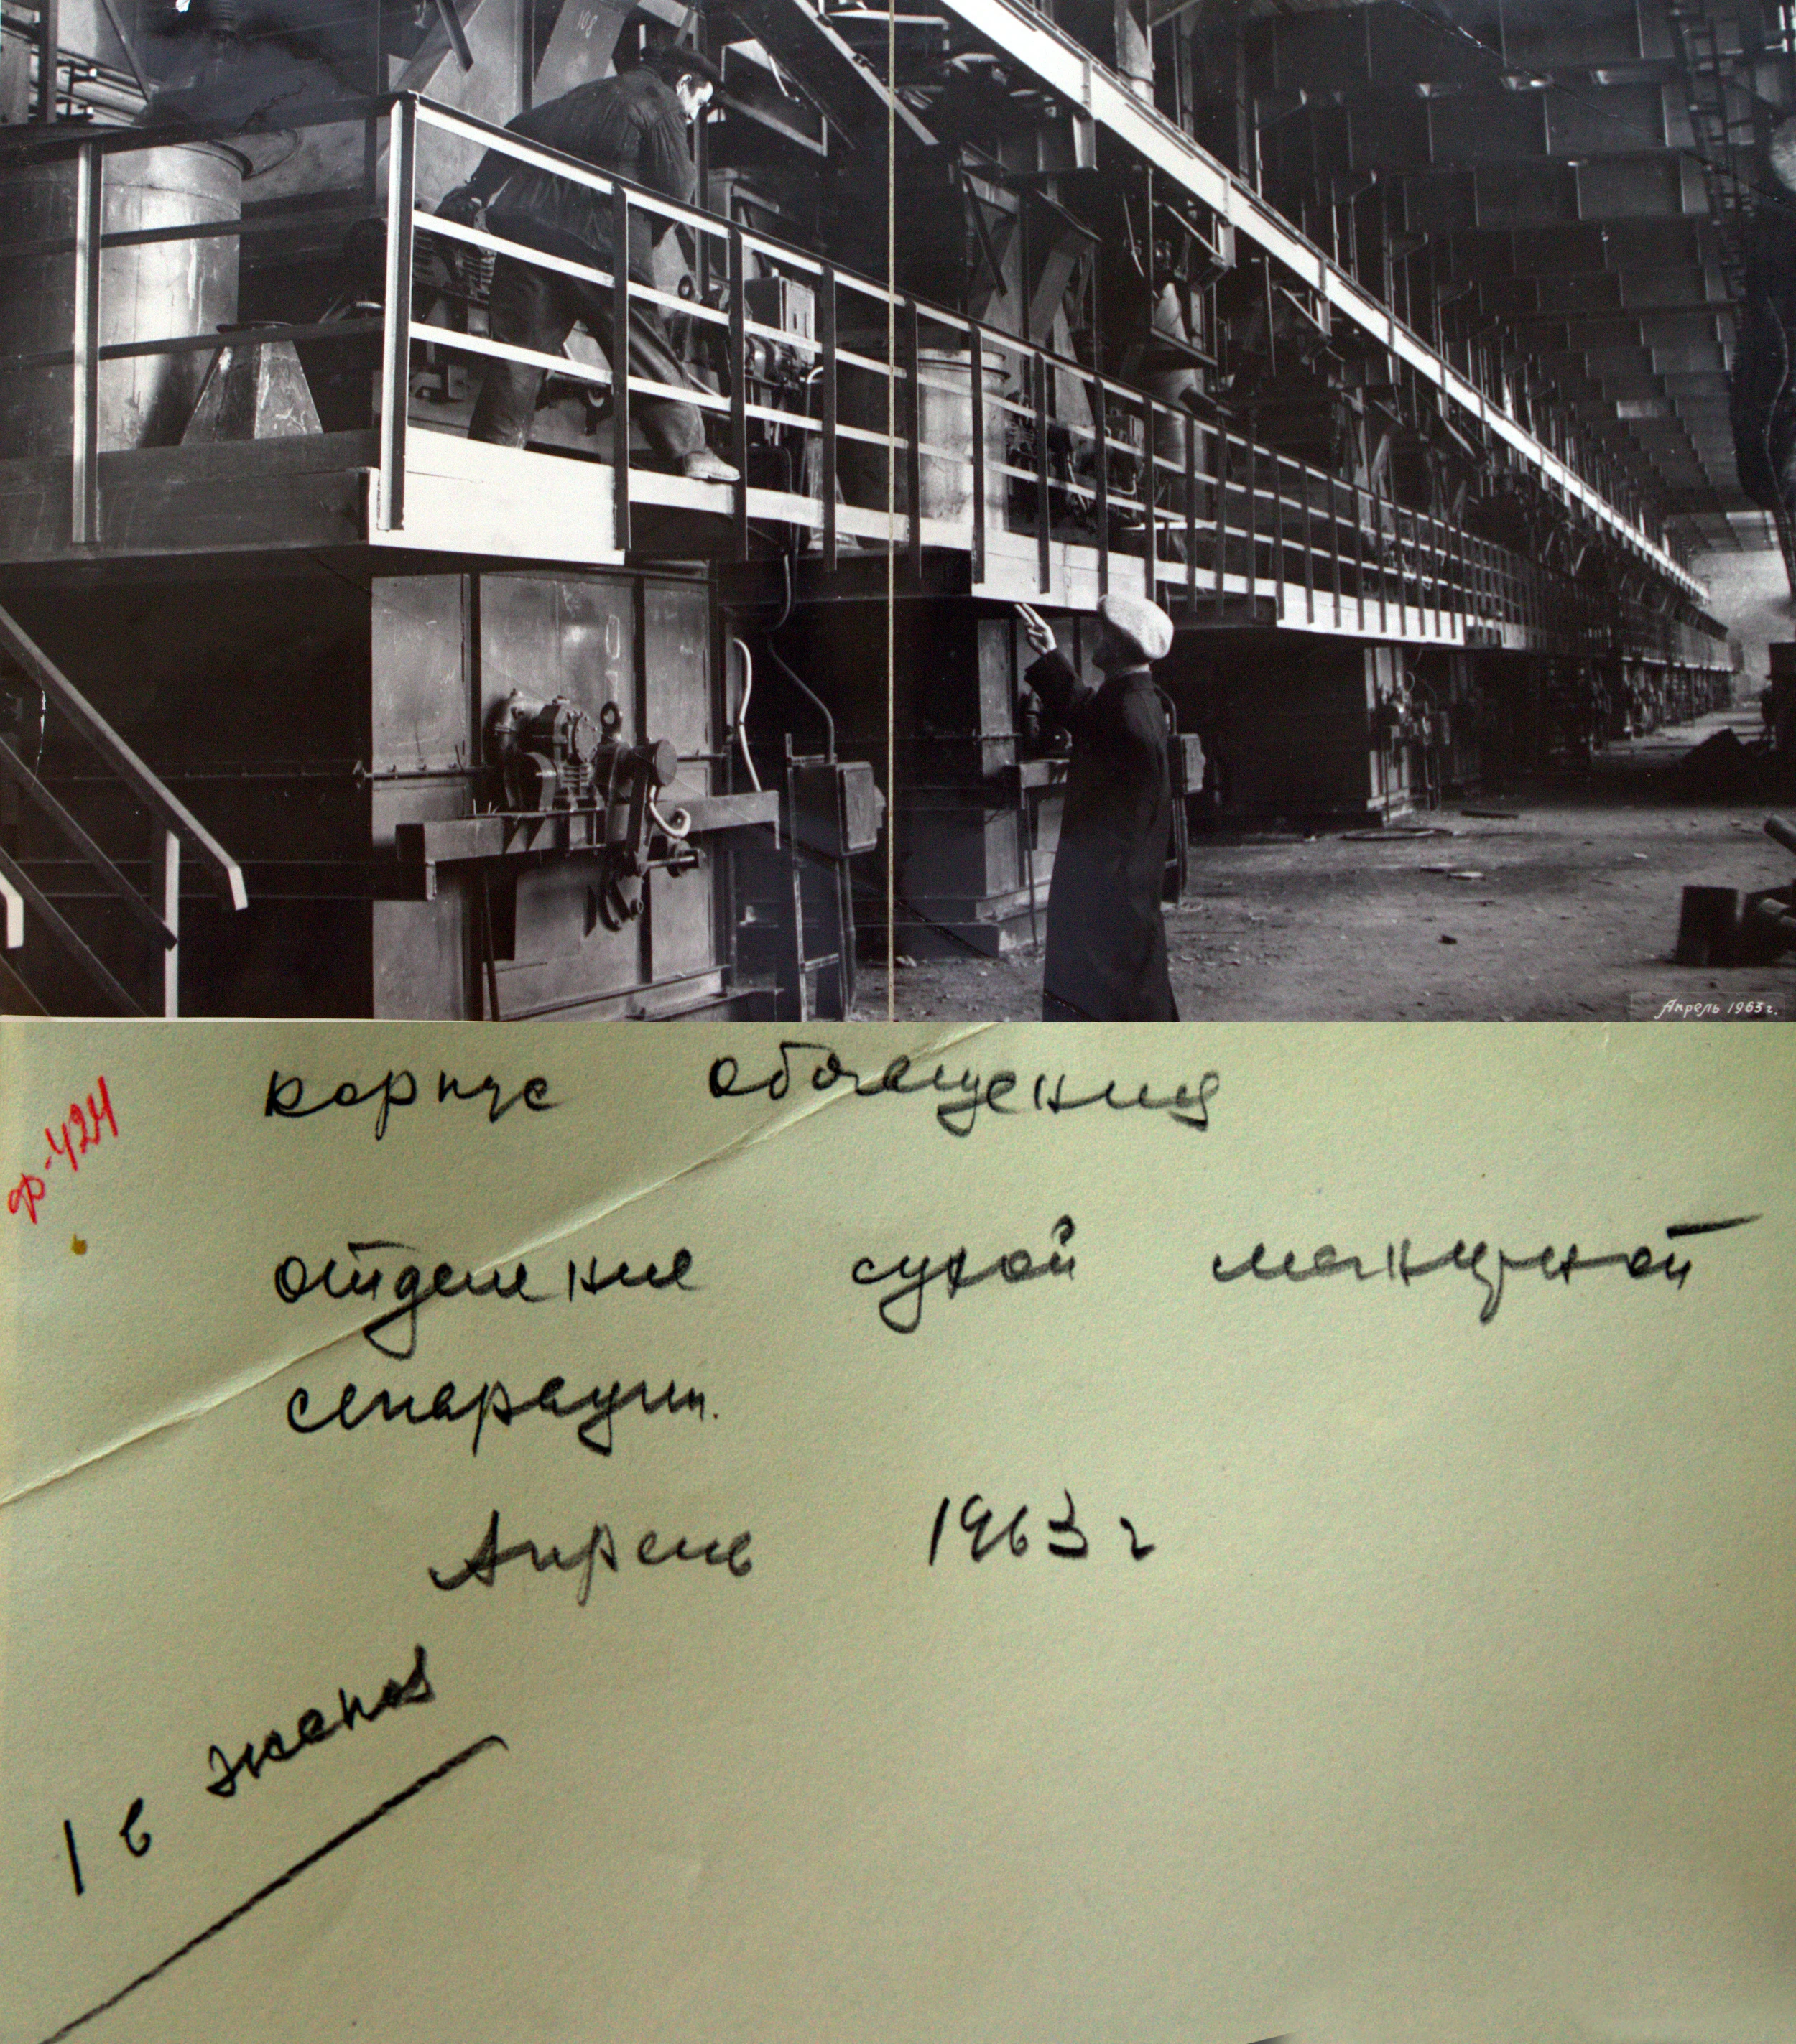 108
Апрель 1963 г.
ф-424
корпус обогащения
отделение сухой магнитной
сепарации.
Апрель 1963 г
1 в